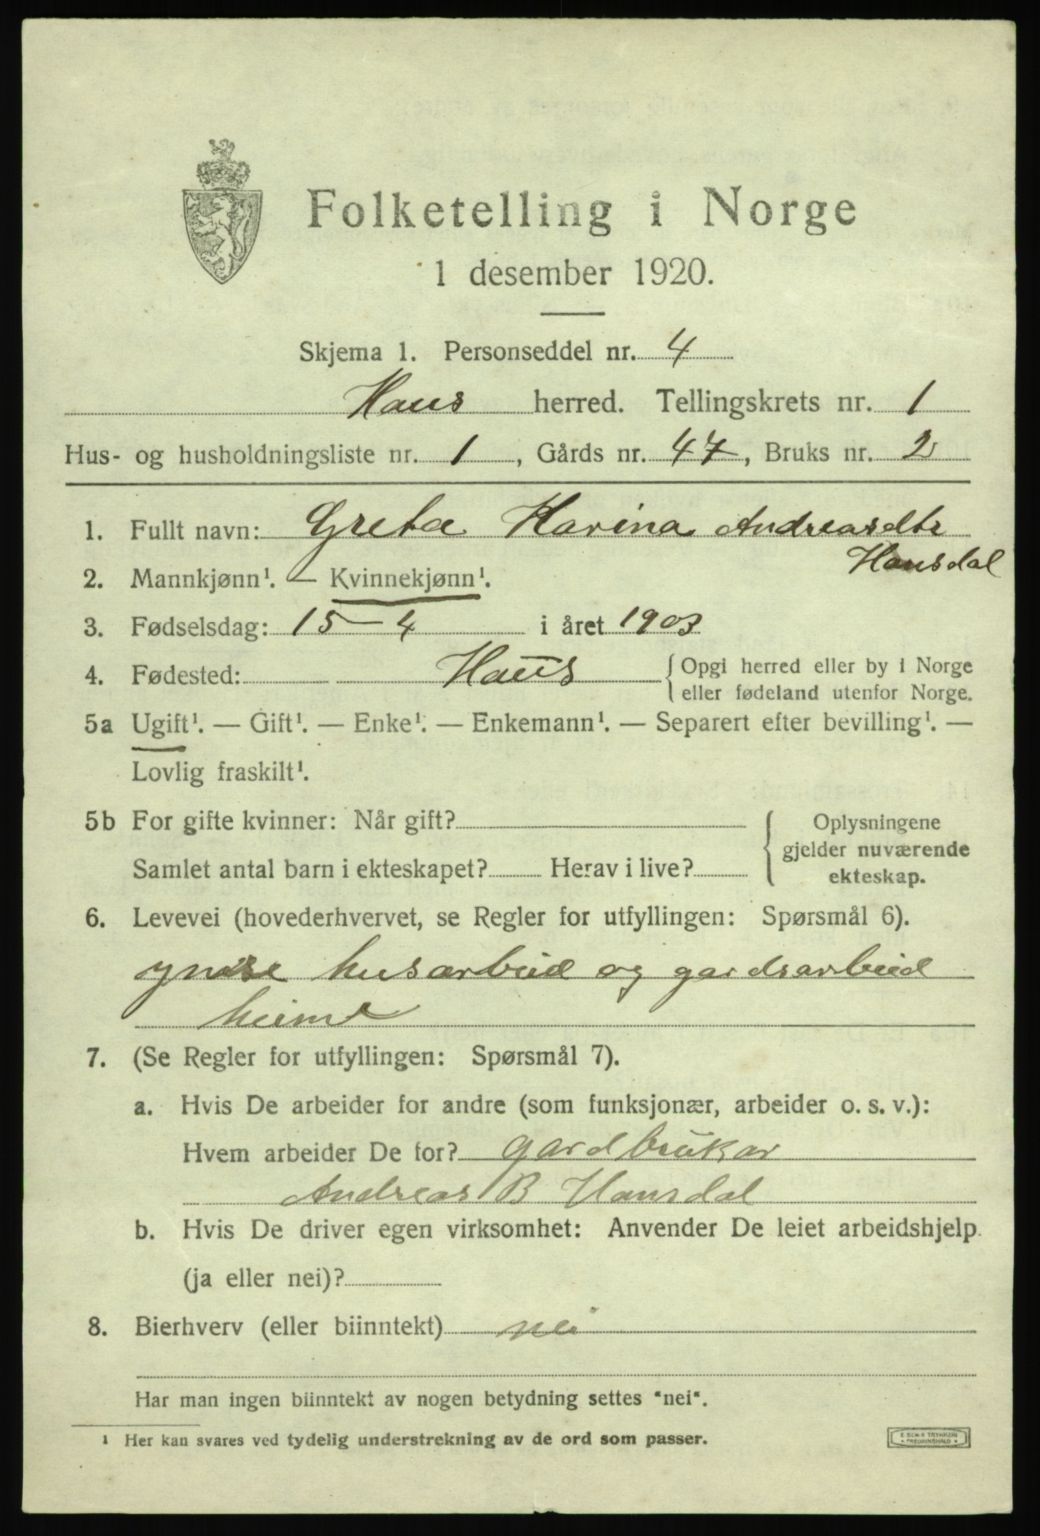 Folketelling i Norge
1 desember 1920.
Skjema 1. Personseddel nr. 4
Haus herred. Tellingskrets nr. 1
Hus- og husholdningsliste nr. 1, Gårds nr. 47, Bruks nr. 2
1. Fullt navn: Greta Karina Andreasdtr
Hausdal
2. Mannkjønn¹. — Kvinnekjønn¹.
3. Fødselsdag: 15 - 4 i året 1903
4. Fødested: Haus { Opgi herred eller by i Norge
eller fødeland utenfor Norge.
5a Ugift¹. — Gift¹. — Enke¹. — Enkemann¹. — Separert efter bevilling¹. —
Lovlig fraskilt¹.
5b For gifte kvinner: Når gift? { Oplysningene
gjelder nuværende
Samlet antal barn i ekteskapet? Herav i live?
ekteskap.
6. Levevei (hovederhvervet, se Regler for utfyllingen: Spørsmål 6).
ymse husarbeid og gardsarbeid
heime
7. (Se Regler for utfyllingen: Spørsmål 7).
a. Hvis De arbeider for andre (som funksjonær, arbeider o. s. v.):
Hvem arbeider De for? gardbrukar
Andreas B Hausdal
b. Hvis De driver egen virksomhet: Anvender De leiet arbeidshjelp
(ja eller nei)?
8. Bierhverv (eller biinntekt) nei
Har man ingen biinntekt av nogen betydning settes "nei".
¹ Her kan svares ved tydelig understrekning av de ord som passer.